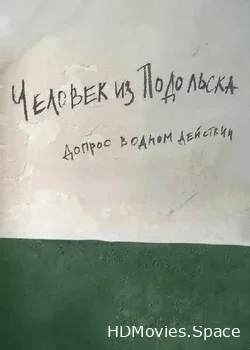 Человек из Подольска
допрос в одном действии
HDMovies.Space